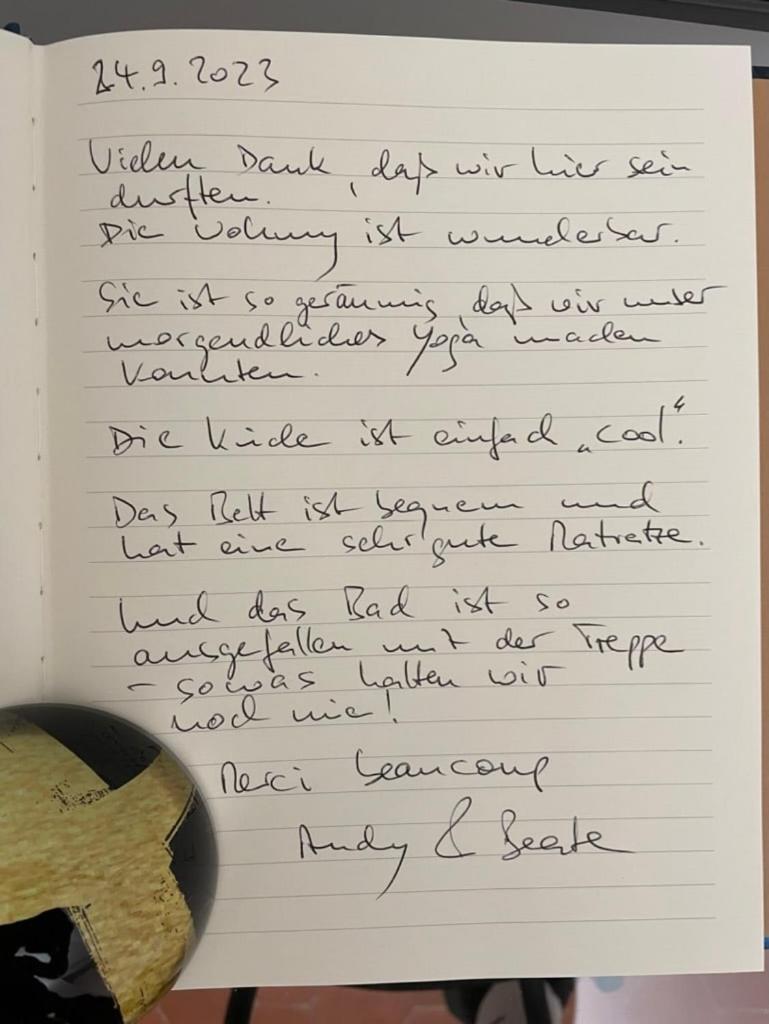 24.9.2023
Vielen Dank, daß wir hier sein
durften.
Die Wohnung ist wunderbar.
Sie ist so geräumig, daß wir unser
morgendliches Yoga machen
konnten.
Die Küche ist einfach „cool“.
Das Bett ist bequem und
hat eine sehr gute Matratze.
Und das Bad ist so
ausgefallen mit der Treppe
– sowas hatten wir
noch nie!
Merci beaucoup
Andy & Beate